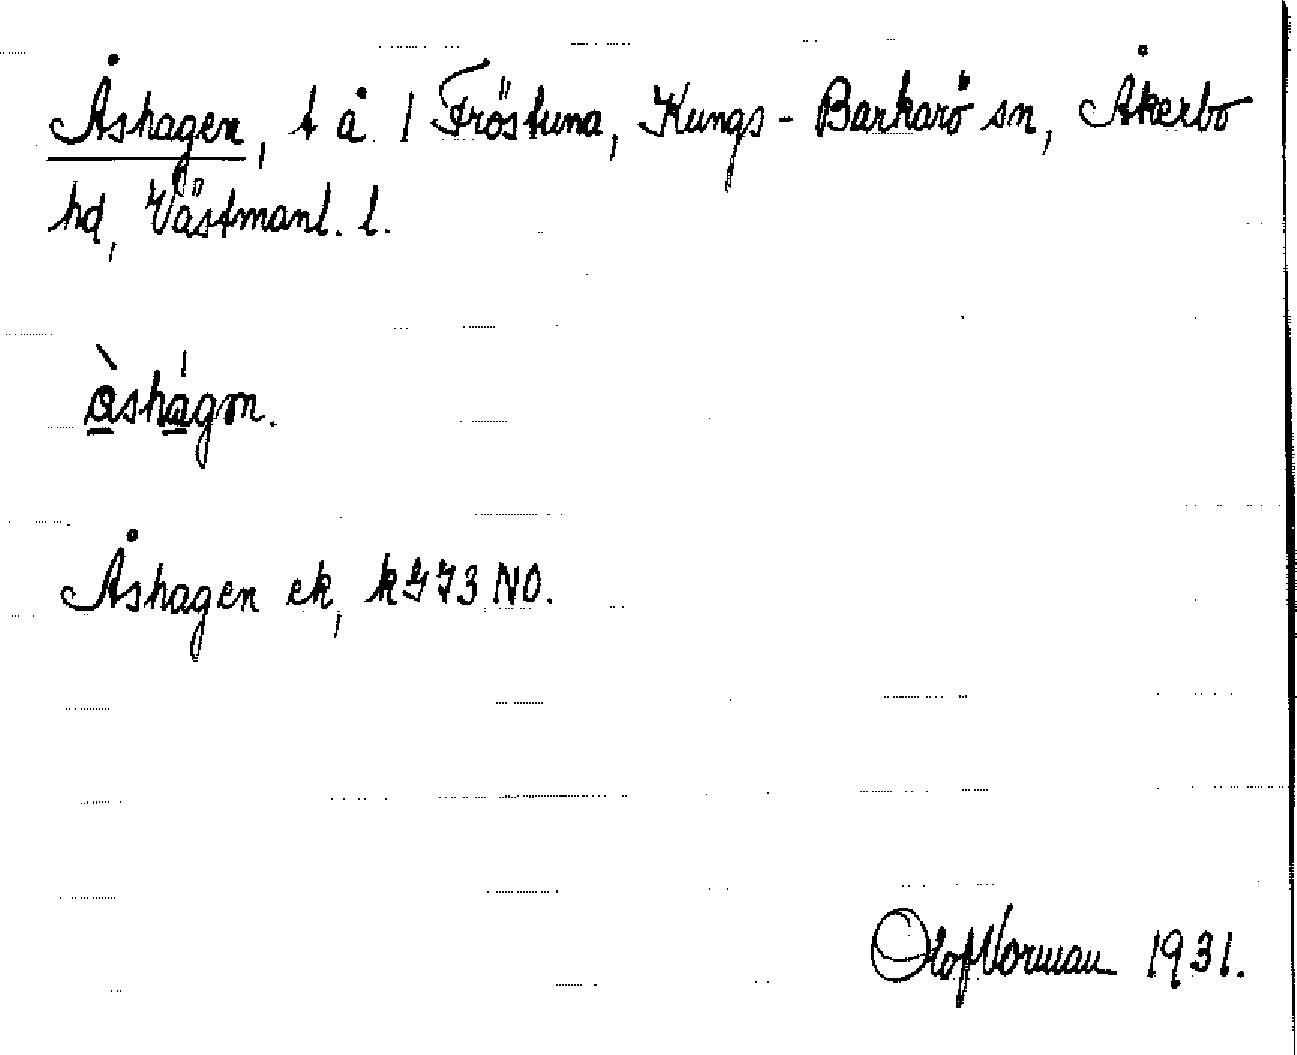 Åshagen, t å 1 Fröstuna, Kungs-Barkarö sn, Åkerbo
hd, Västmanl. l.
Åshagen ek,
NO.
Olof Norman 1931.